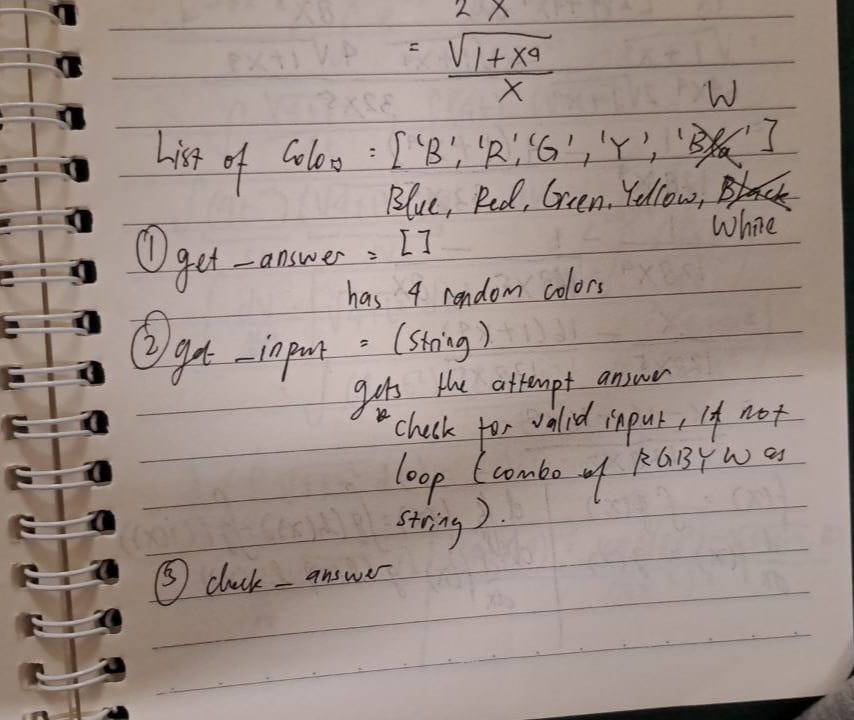 2 X
= √1+X9
X
W
List of Colors = ['B', 'R', 'G', 'Y', 'Bla']
Blue, Red, Green, Yellow, Black
White
① get_answer = []
has 4 random colors
② get_input = (string)
gets the attempt answer
* check for valid input, if not
loop (combo of RGBYW as
string).
③ check_answer